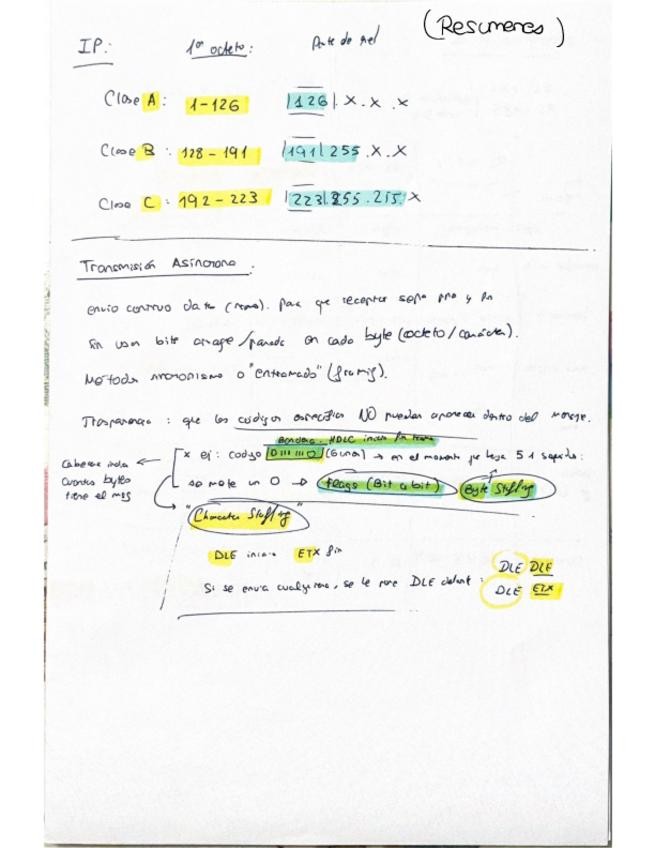 (Resumenes)
IP: 1er octeto: Parte de red
Clase A: 1-126 |126|.x.x.x
Clase B: 128-191 |191|255.x.x
Clase C: 192-223 |223|.255.255.x
Transmisión Asíncrona:
envio continuo datos (). Para que receptor sepa y fin
se usan bits arranque/parada en cada byte (octeto/carácter).
Métodos o "entramado" (framing).
Trasparencia: que los códigos específicos NO puedan aparecer dentro del mensaje.
Bandera HDLC inicio fin trama
x ej: codigo 01111110 (6 unos) → en el momento que haya 5 1 seguidos:
Cabecera indica
cuantos bytes
tiene el msg
se mete un 0 → flags (Bit a bit) Byte Stuffing
"Character Stuffing"
DLE inicio ETX fin
Si se envia cualquiera, se le pone DLE delante:
DLE DLE
DLE ETX